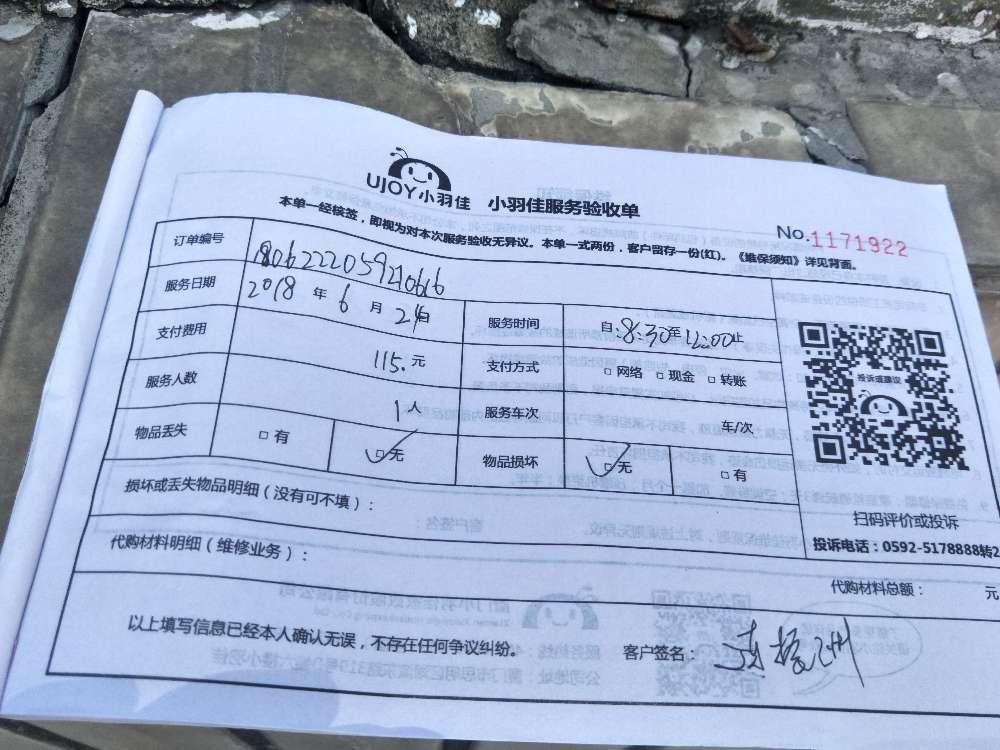 UJOY小羽佳 小羽佳服务验收单
本单一经核签，即视为对本次服务验收无异议。本单一式两份，客户留存一份(红)。《维保须知》详见背面。
No.1171922
订单编号
服务日期 2018年6月24日 服务时间 自:8:30至12:00止
支付费用 115.元 支付方式 □网络 □现金 □转账
服务人数 1人 服务车次 车/次
物品丢失 □有 □无 物品损坏 □无 □有
投诉或建议
扫码评价或投诉
投诉电话：0592-5178888转2
损坏或丢失物品明细（没有可不填）：
代购材料明细（维修业务）：
代购材料总额： 元
以上填写信息已经本人确认无误，不存在任何争议纠纷。
客户签名：